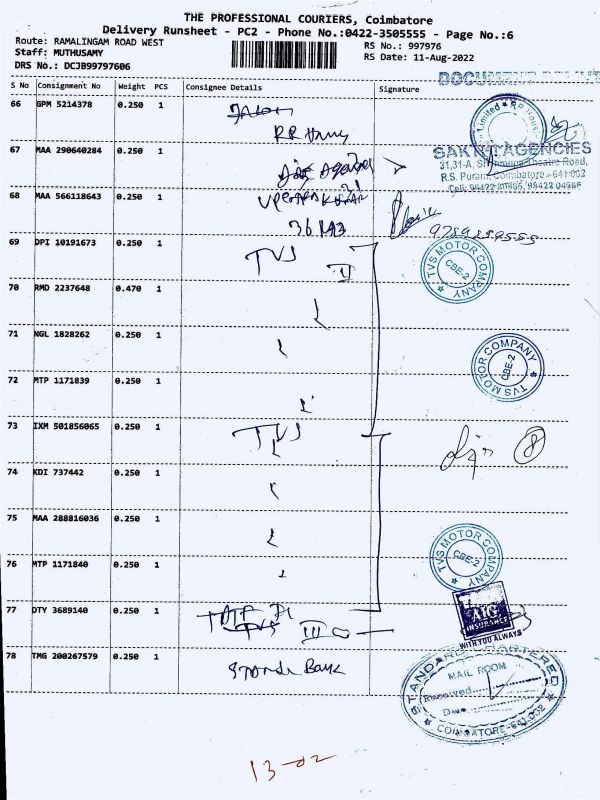 THE PROFESSIONAL COURIERS, Coimbatore
Delivery Runsheet - PC2 - Phone No.:0422-3505555 - Page No.:6
Route: RAMALINGAM ROAD WEST
RS No.: 997976
Staff: MUTHUSAMY
RS Date: 11-Aug-2022
DRS No.: DCJB99797606
S No Consignment No Weight PCS Consignee Details Signature
66 GPM 5214378 0.250 1
67 MAA 290640284 0.250 1
SAKTHI AGENCIES
31,31-A, Shanmuga Theatre Road,
R.S. Puram, Coimbatore - 641 002
68 MAA 566118643 0.250 1
9789259555
69 DPI 10191673 0.250 1 TVS II
TVS MOTOR COMPANY
CBE-2
70 RMD 2237648 0.470 1
71 NGL 1828262 0.250 1
TVS MOTOR COMPANY
CBE-2
72 MTP 1171839 0.250 1
73 IXM 501856065 0.250 1 TVS
8
74 KDI 737442 0.250 1
75 MAA 288816036 0.250 1
76 MTP 1171840 0.250 1
TVS MOTOR COMPANY
CBE-2
77 DTY 3689140 0.250 1 III
AIG
INSURANCE
WITH YOU ALWAYS
78 TMG 200267579 0.250 1 Bank
STANDARD CHARTERED
MAIL ROOM
Received
Date
COIMBATORE-641 002